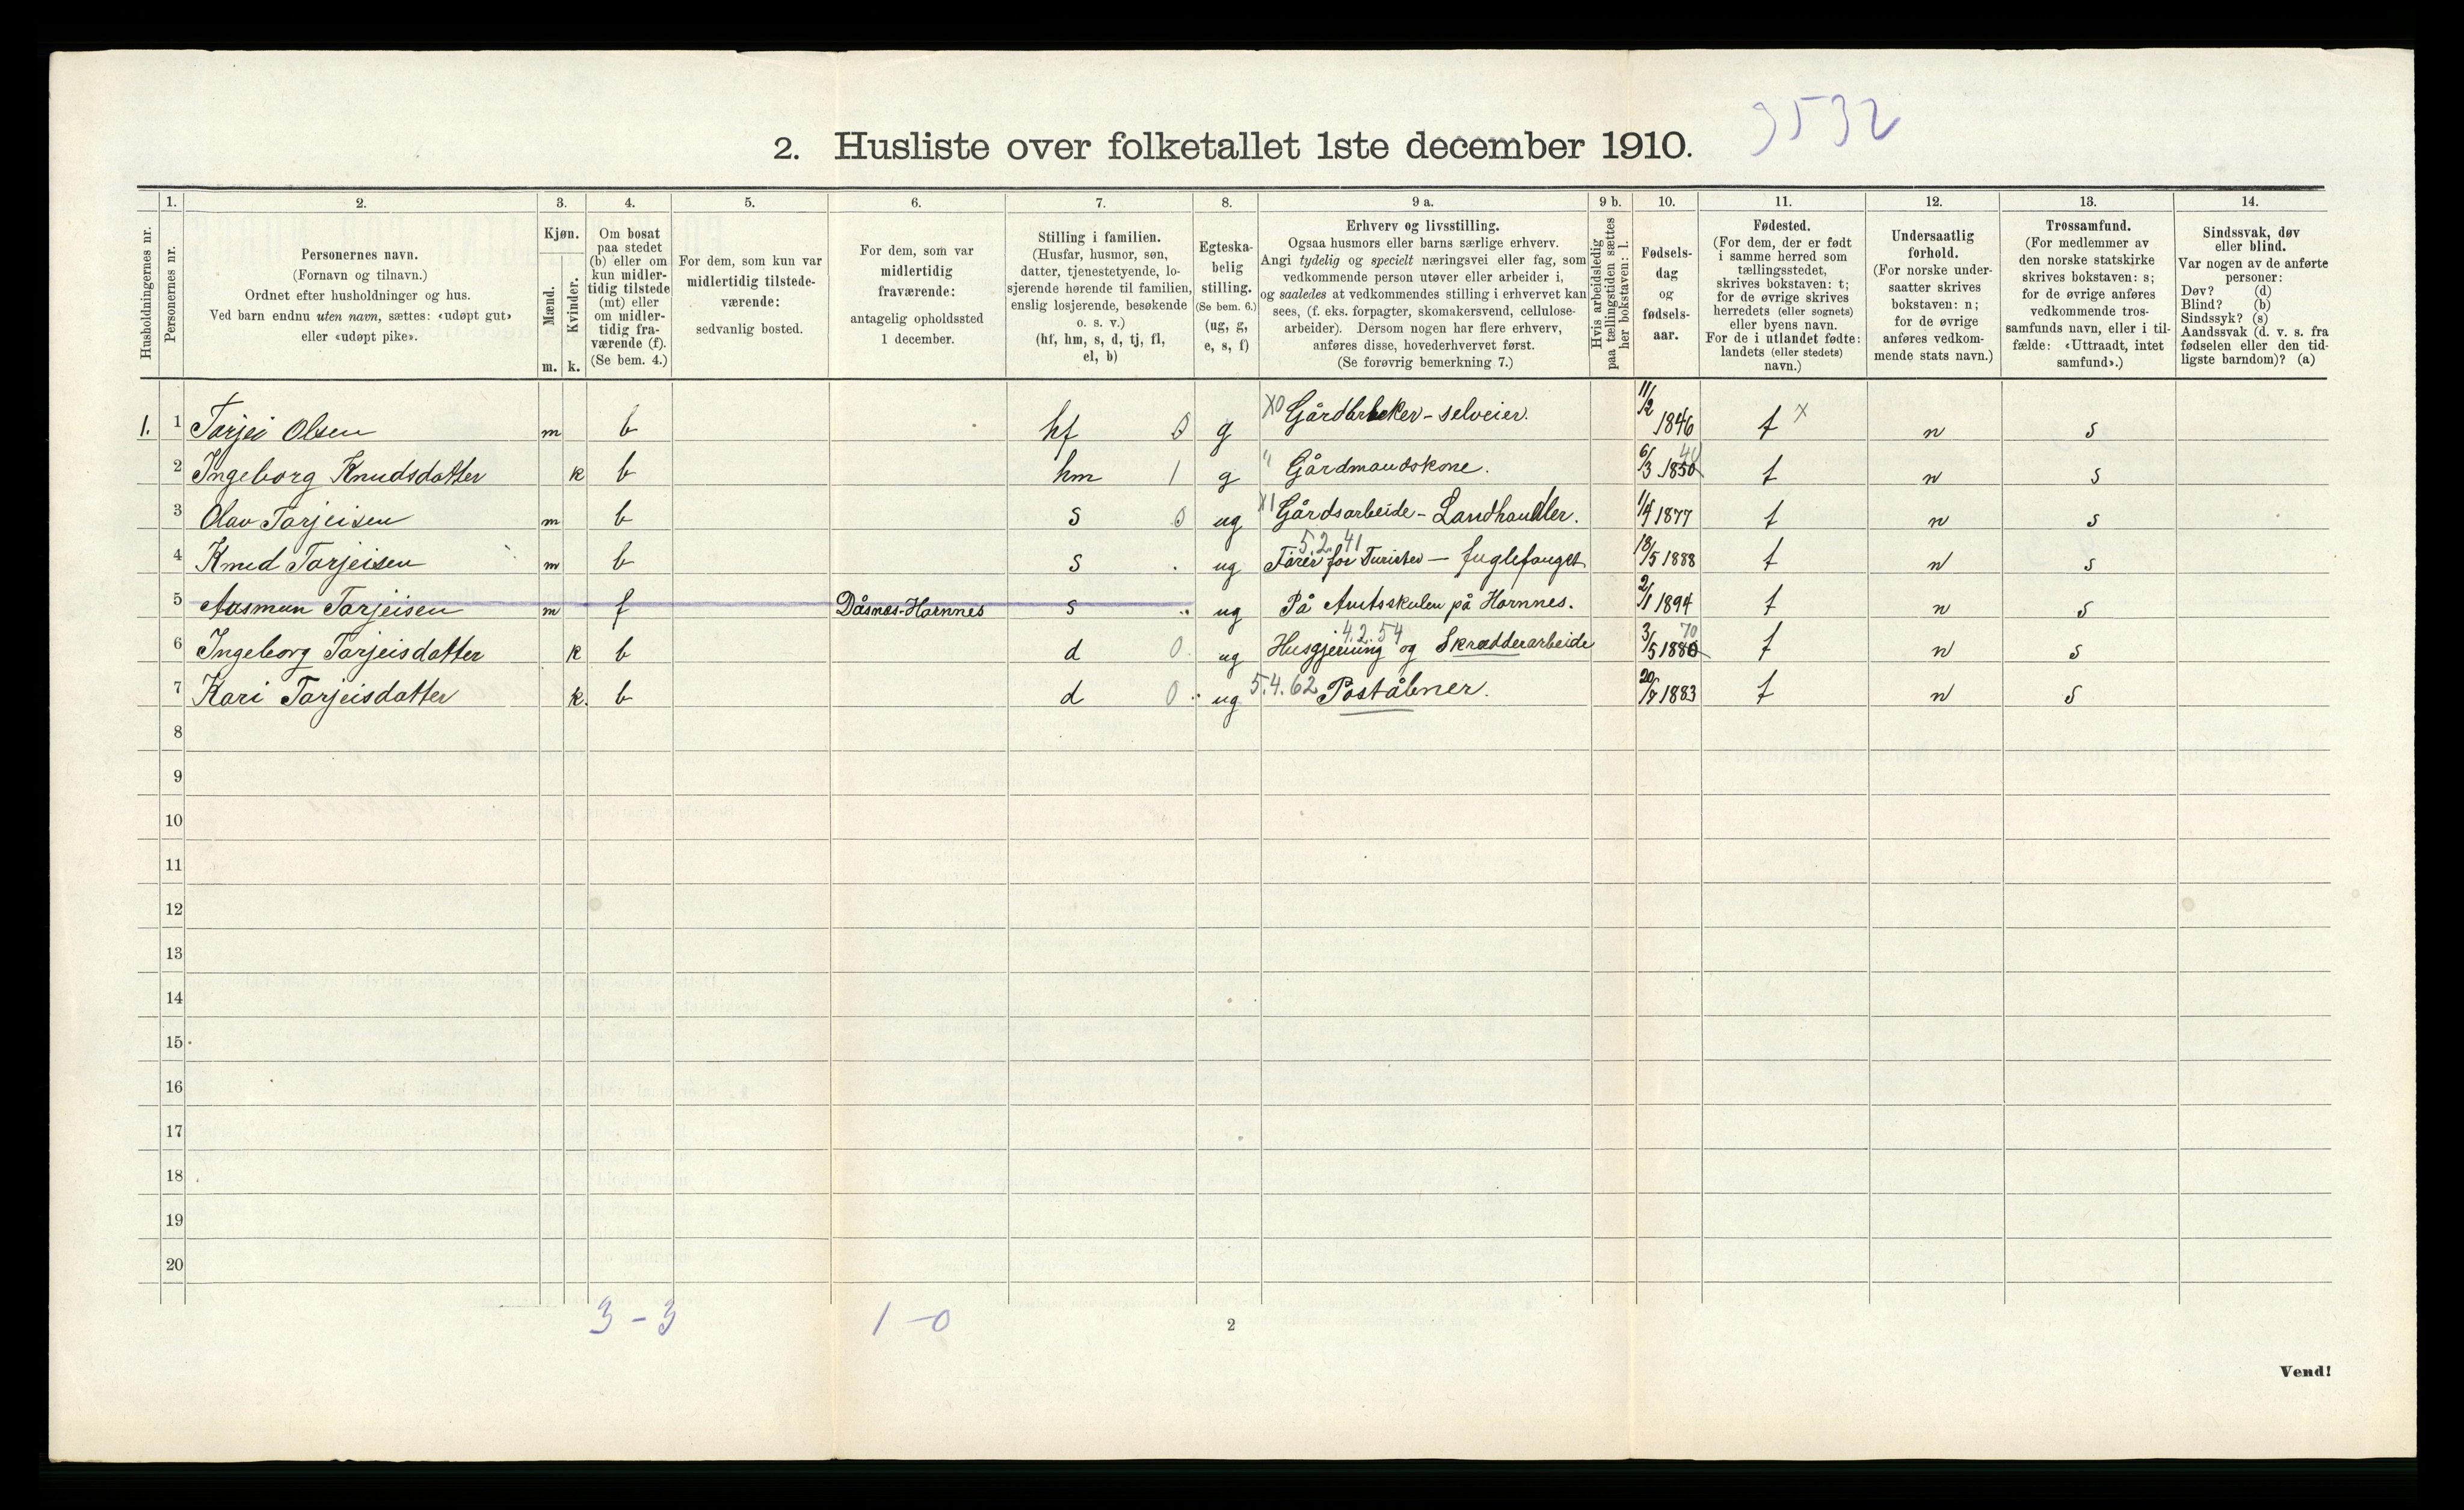 3532
2. Husliste over folketallet 1ste december 1910.
Husholdningernes nr.
1.
Personernes nr.
2.
Personernes navn.
(Fornavn og tilnavn.)
Ordnet efter husholdninger og hus.
Ved barn endnu uten navn, sættes: «udøpt gut»
eller «udøpt pike».
3.
Kjøn.
Mænd.
Kvinder.
m. k.
4.
Om bosat
paa stedet
(b) eller om
kun midler-
tidig tilstede
(mt) eller
om midler-
tidig fra-
værende (f).
(Se bem. 4.)
5.
For dem, som kun var
midlertidig tilstede-
værende:
sedvanlig bosted.
6.
For dem, som var
midlertidig
fraværende:
antagelig opholdssted
1 december.
7.
Stilling i familien.
(Husfar, husmor, søn,
datter, tjenestetyende, lo-
sjerende hørende til familien,
enslig losjerende, besøkende
o. s. v.)
(hf, hm, s, d, tj, fl,
el, b)
8.
Egteska-
belig
stilling.
(Se bem. 6.)
(ug, g,
e, s, f)
9 a.
Erhverv og livsstilling.
Ogsaa husmors eller barns særlige erhverv.
Angi tydelig og specielt næringsvei eller fag, som
vedkommende person utøver eller arbeider i,
og saaledes at vedkommendes stilling i erhvervet kan
sees, (f. eks. forpagter, skomakersvend, cellulose-
arbeider). Dersom nogen har flere erhverv,
anføres disse, hovederhvervet først.
(Se forøvrig bemerkning 7.)
9 b.
Hvis arbeidsledig
paa tællingstiden sættes
her bokstaven: l.
10.
Fødsels-
dag
og
fødsels-
aar.
11.
Fødested.
(For dem, der er født
i samme herred som
tællingsstedet,
skrives bokstaven: t;
for de øvrige skrives
herredets (eller sognets)
eller byens navn.
For de i utlandet fødte:
landets (eller stedets)
navn.)
12.
Undersaatlig
forhold.
(For norske under-
saatter skrives
bokstaven: n;
for de øvrige
anføres vedkom-
mende stats navn.)
13.
Trossamfund.
(For medlemmer av
den norske statskirke
skrives bokstaven: s;
for de øvrige anføres
vedkommende tros-
samfunds navn, eller i til-
fælde: «Uttraadt, intet
samfund».)
14.
Sindssvak, døv
eller blind.
Var nogen av de anførte
personer:
Døv? (d)
Blind? (b)
Sindssyk? (s)
Aandssvak (d. v. s. fra
fødselen eller den tid-
ligste barndom)? (a)
1. 1 Tarjei Olsen m b hf 0 g X0 Gårdbruker - selveier. 11/2 1846 t X n s
2 Ingeborg Knudsdatter k b hm 1 g " Gårdmandskone. 6/3 1850 40 t n s
3 Olav Tarjeisen m b s 0 ug X1 Gårdsarbeide - Landhandler. 1/4 1877 t n s
5.2.41
4 Knud Tarjeisen m b s ug Fører for Turister - fuglefangst 18/5 1888 t n s
5 Aasmun Tarjeisen m f Dåsnes-Hornnes s ug På Amtsskulen på Hornnes. 2/1 1894 t n s
4.2.54
6 Ingeborg Tarjeisdatter k b d 0 ug Husgjerning og Skrædderarbeide 3/5 1880 70 t n s
7 Kari Tarjeisdatter k. b d 0 ug 5.4.62 Poståbner. 1883 t n s
8
9
10
11
12
13
14
15
16
17
18
19
20
3-3 1-0
2
Vend!